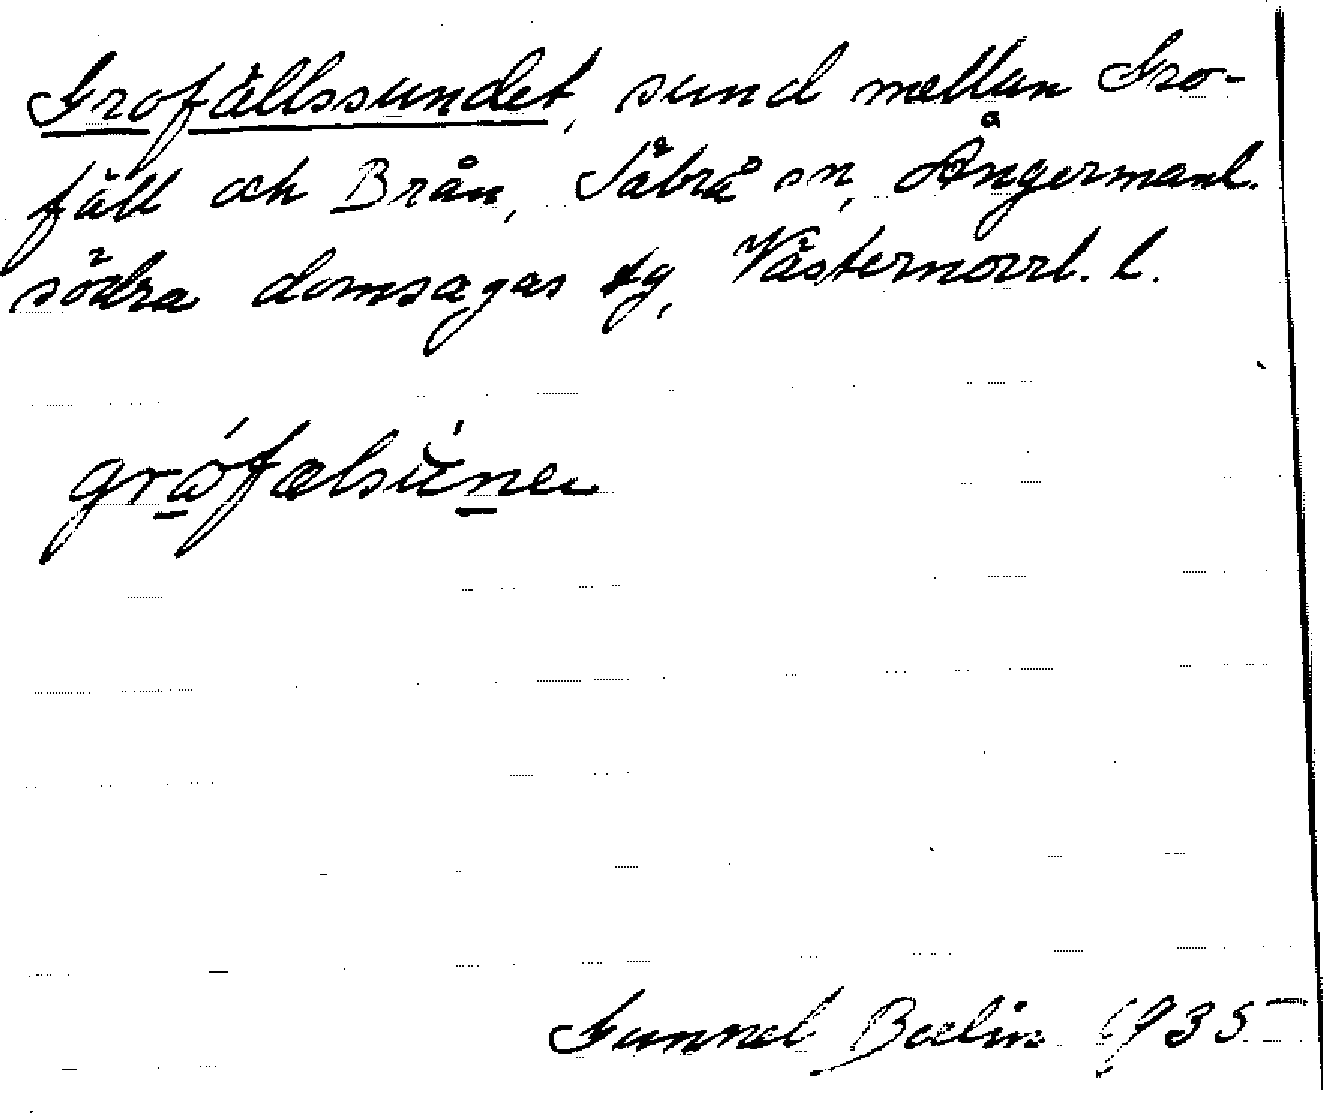 Grofällssundet, sund mellan Gro-
fäll och Brån, Säbrå sn, Ångermanl.
södra domsagas tg, Västernorrl. l.
grófælsúneɩ
Gunnel Bælin 1935